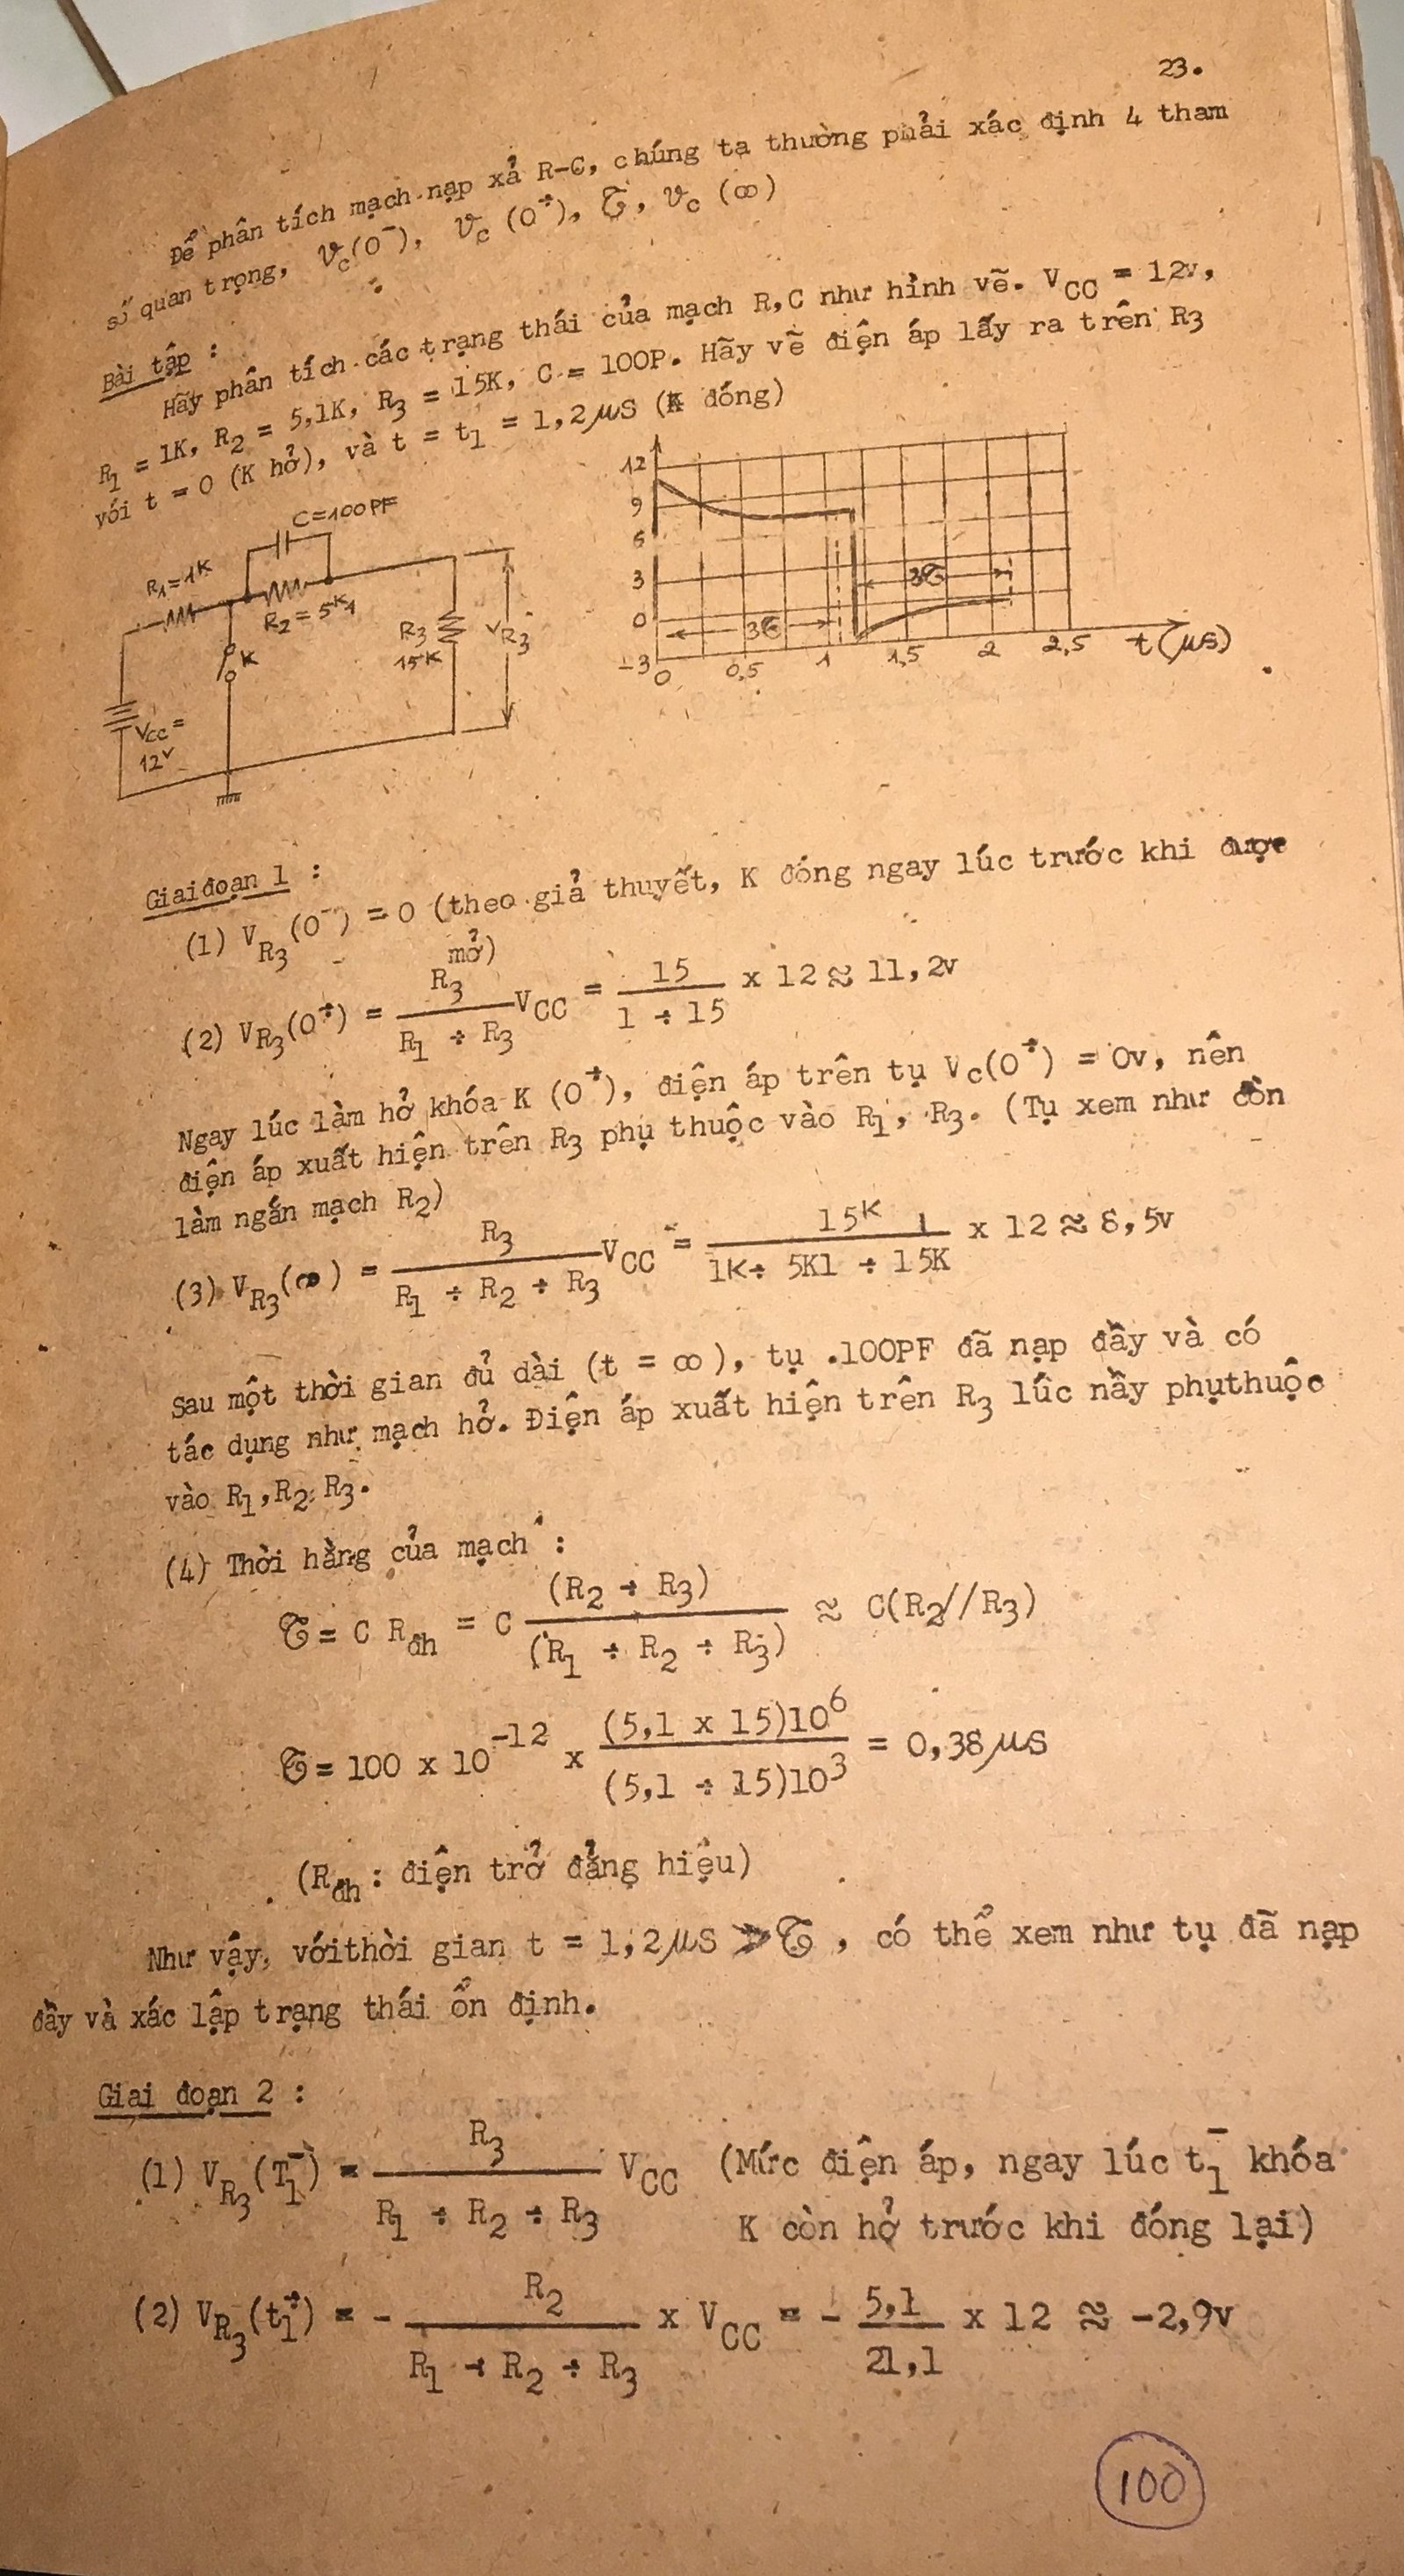 23.
Để phân tích mạch nạp xả R-C, chúng ta thường phải xác định 4 tham
số quan trọng, Vc(0⁻), Vc(0⁺), 𝜏, Vc(∞)
Bài tập :
Hãy phân tích các trạng thái của mạch R,C như hình vẽ. VCC = 12v,
R1 = 1K, R2 = 5,1K, R3 = 15K, C = 100P. Hãy vẽ điện áp lấy ra trên R3
với t = 0 (K hở), và t = t1 = 1,2µS (K đóng)
C=100PF
R1=1K
R2 = 5K1
R3
15K
VR3
K
VCC =
12V
12
9
6
3
0
-3
3𝜏
3𝜏
0
0,5
1
1,5
2
2,5
t(µs)
Giai đoạn 1 :
(1) VR3(0⁻) = 0 (theo giả thuyết, K đóng ngay lúc trước khi được
mở)
(2) VR3(0⁺) = R3/(R1 + R3) VCC = 15/(1 + 15) x 12 ≈ 11,2v
Ngay lúc làm hở khóa K (0⁺), điện áp trên tụ Vc(0⁺) = 0v, nên
điện áp xuất hiện trên R3 phụ thuộc vào R1, R3. (Tụ xem như còn
làm ngắn mạch R2)
(3) VR3(∞) = R3/(R1 + R2 + R3) VCC = 15K/(1K+ 5K1 + 15K) x 12 ≈ 8,5v
Sau một thời gian đủ dài (t = ∞), tụ .100PF đã nạp đầy và có
tác dụng như mạch hở. Điện áp xuất hiện trên R3 lúc nầy phụthuộc
vào R1,R2,R3.
(4) Thời hằng của mạch :
𝜏 = C Rđh = C (R2 + R3)/(R1 + R2 + R3) ≈ C(R2//R3)
𝜏 = 100 x 10⁻¹² x (5,1 x 15)10⁶/(5,1 + 15)10³ = 0,38µS
(Rđh : điện trở đẳng hiệu)
Như vậy, vớithời gian t = 1,2µS ≫ 𝜏 , có thể xem như tụ đã nạp
đầy và xác lập trạng thái ổn định.
Giai đoạn 2 :
(1) VR3(T1⁻) = R3/(R1 + R2 + R3) VCC (Mức điện áp, ngay lúc t1⁻ khóa
K còn hở trước khi đóng lại)
(2) VR3(t1⁺) = - R2/(R1 + R2 + R3) x VCC = - 5,1/21,1 x 12 ≈ -2,9v
100